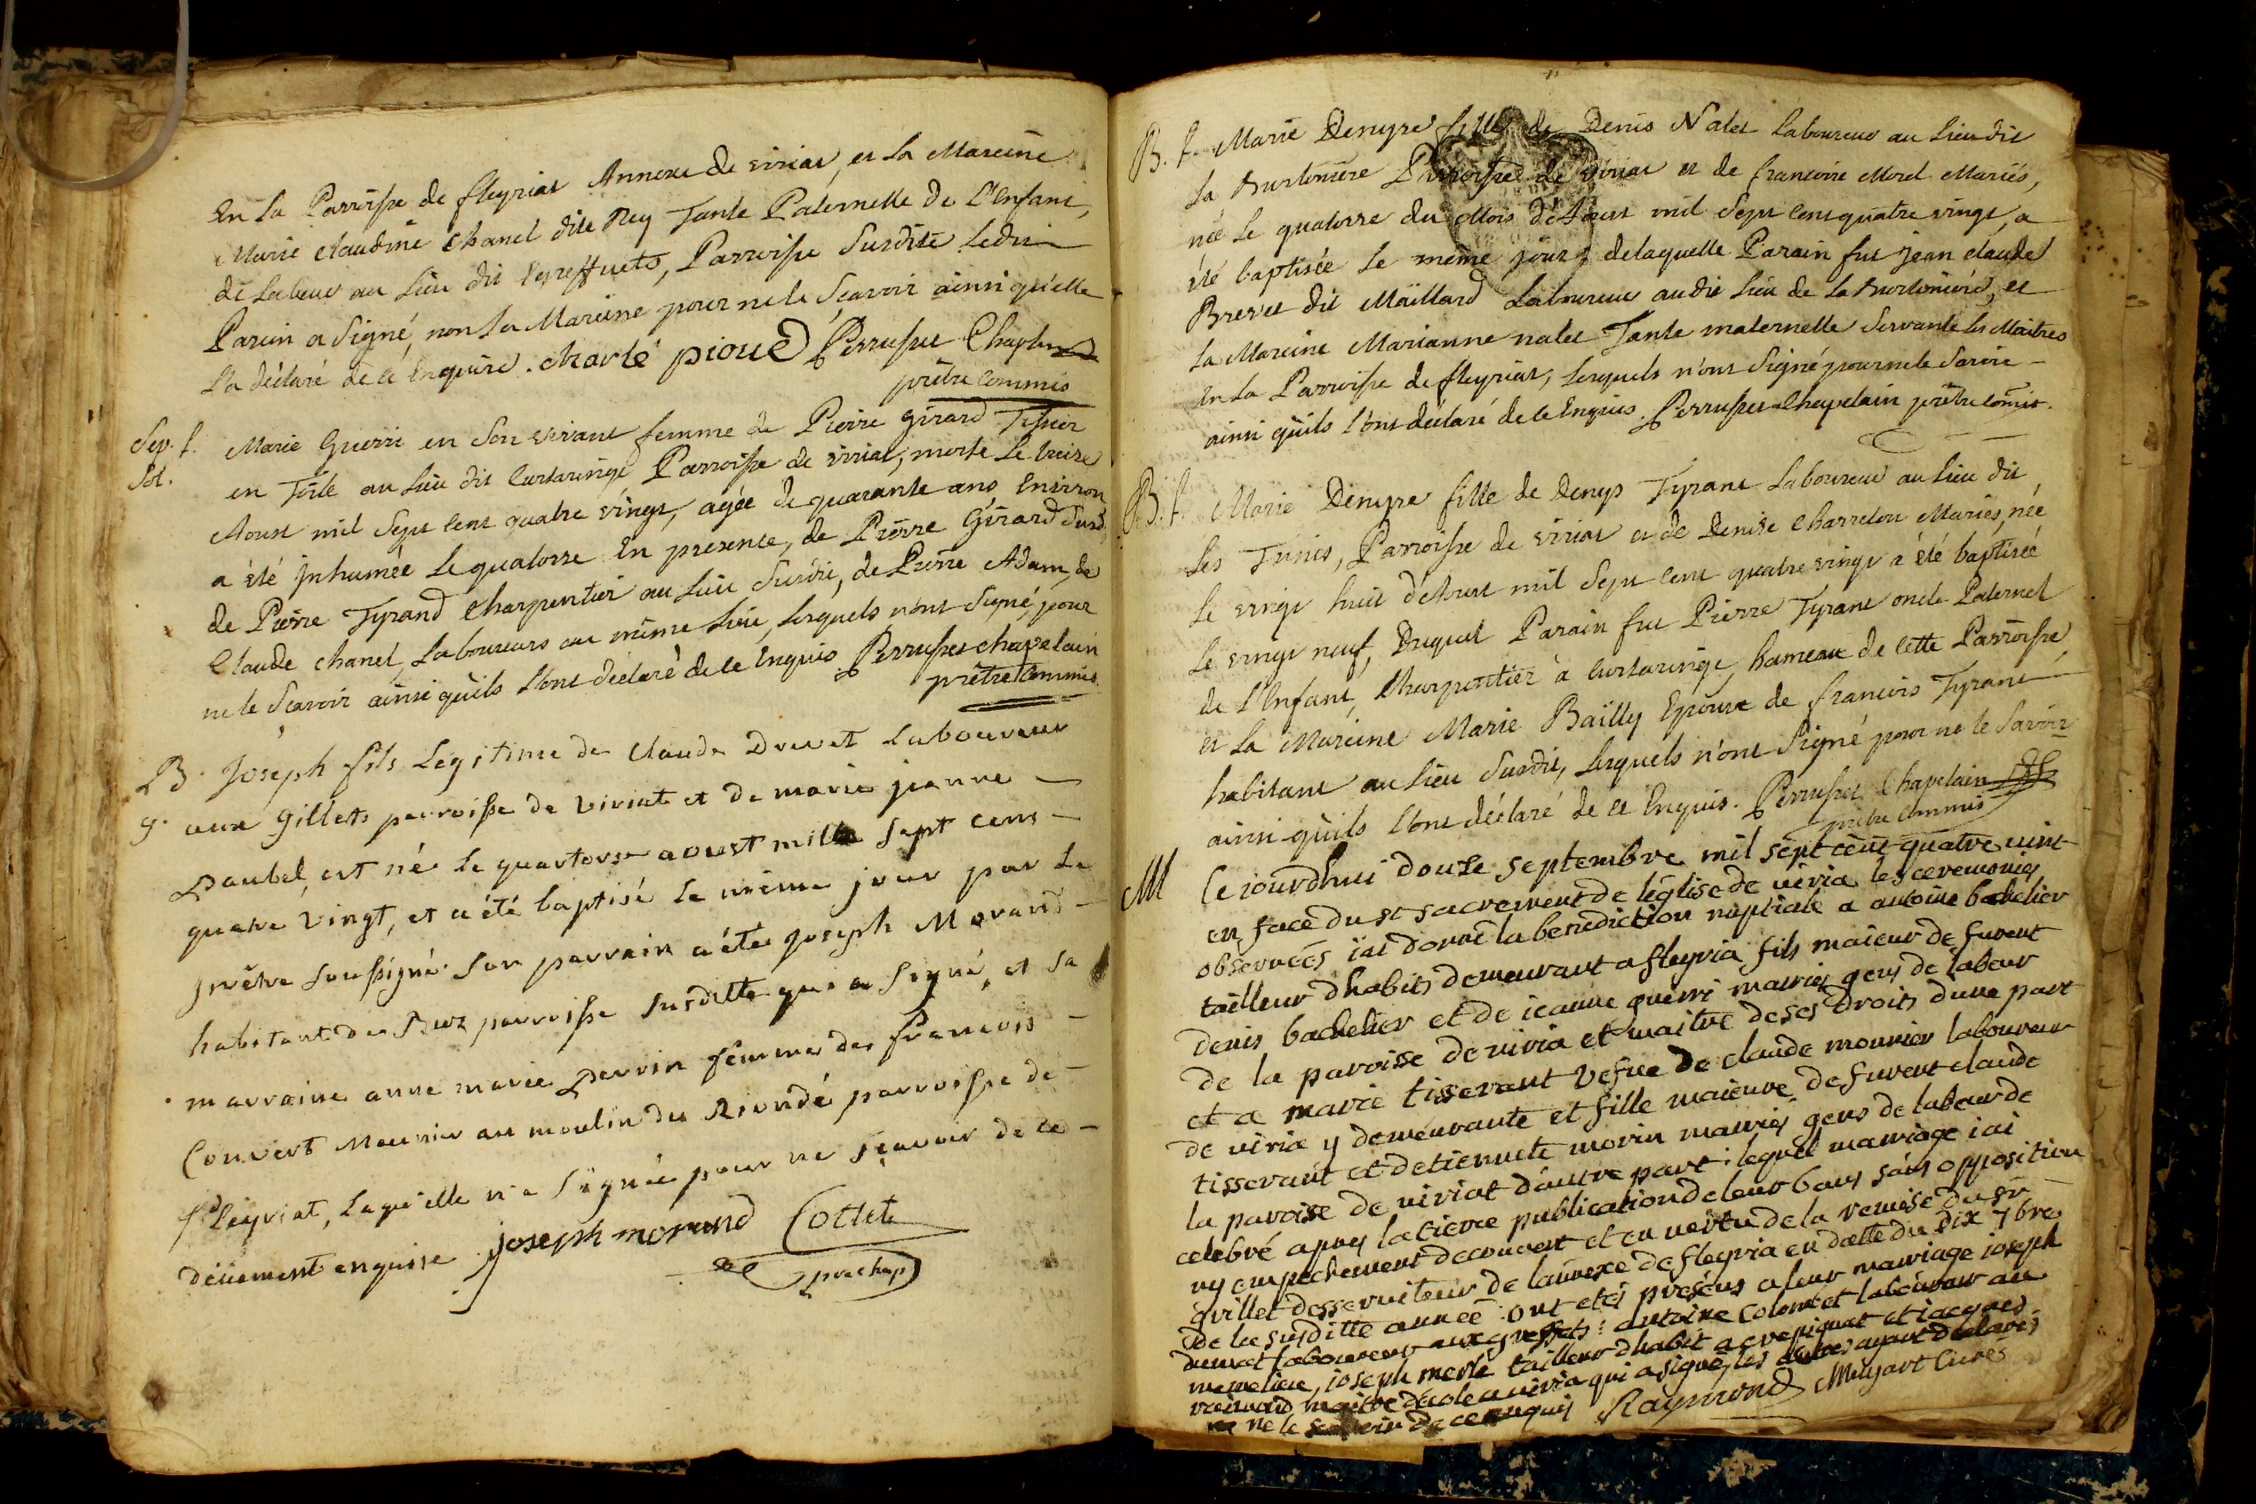 En la Parroisse de fleyriat Annexe de viriat, et la Mareine
Marie Claudine Chanel dite Rey Tante Paternelle de L'Enfant,
de Labeur au lieu dit Egreffuets, Parroisse Susdite Ledit
Parein a Signé, non la Mareine pour ne le Scavoir ainsi qu'elle
l'a déclaré de ce Enquise. Charle pioud Perrusset Chapelain
prêtre Commis
Sep. f.
Marie Guerri en Son vivant femme de Pierre Girard Tissier
Sol.
en Toile au Lieu dit Curtaringe Parroisse de viriat, morte le treize
Aoust mil Sept Cent quatre vingt, agée de quarante ans Environ
a été Jnhumée Le quatorse En presence, de Pierre Girard Susd.
de Pierre Tyrand Charpentier au Lieu Susdit, de Pierre Adam, de
Claude Chanel, Laboureurs au même Lieu, Lesquels n'ont Signé, pour
ne le Scavoir ainsi qu'ils L'ont déclaré de ce Enquis Perrusset chapelain
prêtre Commis.
B. Joseph fils Légitime de Claude Drevet Laboureur
g. aux Gillets parroisse de Viriat et de marie jeanne
Paubel, est né le quartorse aoust mille Sept cens
quatre Vingt, et a été baptisé Le même jour par Le
prêtre Soussigné. Son parrain a été joseph Morand
habitant du Buz parroisse Susditte qui a Signé, et Sa
marraine anne marie Perrin femme de francois
Convert Meunier au moulin du Riondé parroisse de
fleyriat, Laquelle n'a Signée pour ne Sçavoir de ce
düement enquise. joseph morand Cottet
pre chap
B. f. Marie Denyse fille de Denis Nalet Laboureur au Lieu dit
La Burtoniere Parroisse de viriat et de francoise Morel Mariés,
née Le quatorse du Mois d'Aoust mil Sept Cent quatre vingt, a
été baptisée Le même jour, de laquelle Parain fut jean claude
Brevet dit Maillard Laboureur audit Lieu de La Burtoniere, et
la Mareine Marianne nalet Tante maternelle Servante les Maitres
En La Parroisse de fleyriat, Lesquels n'ont Signé pour ne le Savoir
ainsi qu'ils l'ont déclaré de ce Enquis. Perrusset Chapelain prêtre Comis.
B. f. Marie Denyse fille de Denys Tyrant Laboureur au Lieu dit
Les Tunis, Parroisse de viriat et de Denise Charreton Mariés, née
Le vingt huit d'Aoust mil Sept Cent quatre vingt a été baptisée
Le vingt neuf, Duquel Parain fut Pierre Tyrant oncle Paternel
de L'Enfant, Charpentier à Curtaringe, hameau de Cette Parroisse,
et La Mareine Marie Bailly Epouse de francois Tyrant
habitant au Lieu Susdit, Lesquels n'ont Signé pour ne le Savoir
ainsi qu'ils l'ont déclaré de ce Enquis. Perrusset Chapelain
prêtre Commis
M Ce iourdhui douze septembre mil sept cent quatre vint
en face du st sacrement de léglise de viria les ceremonies
observées iai donné la benediction nuptiale a antoine bachelier
tailleur dhabits demeurant a fleyria fils maieur de furent
denis bachelier et de ieanne guerri mariés gens de labeur
de la paroisse de viria et maitre de ses droits dune part
et a marie tisserant vefve de claude mounier laboureur
de viria y demeurante et fille maieure de furent claude
tisserant et detiennete morin mariés gens de labeur de
la paroise de viriat dautre part. lequel mariage iai
celebré apres la tierce publication de leur bans sans opposition
ny empechement decouvert et en vertu de la remise du sr
grillet desserviteur de lannexe de fleyria en datte du dix 7bre
de la susditte année. ont etés présens a leur mariage ioseph
druvet laboureur aux greffets: antoine Colomet laboureur au
meme lieu, ioseph merle tailleur dhabit a crepignat et iacques
raimond maitre décole a viria qui a signé, les autres ayant déclarés
ne le de ce enquis Raymond Meyart Curé